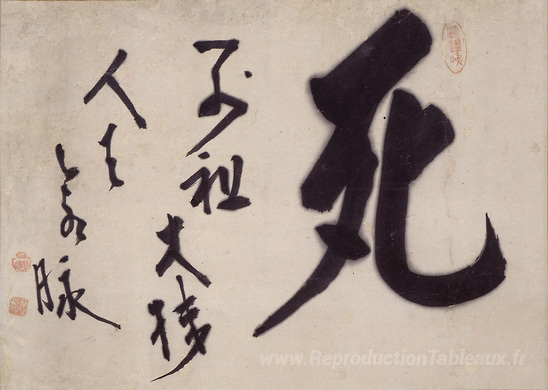 死
佛祖大機
人天命脈
www.ReproductionTableaux.fr